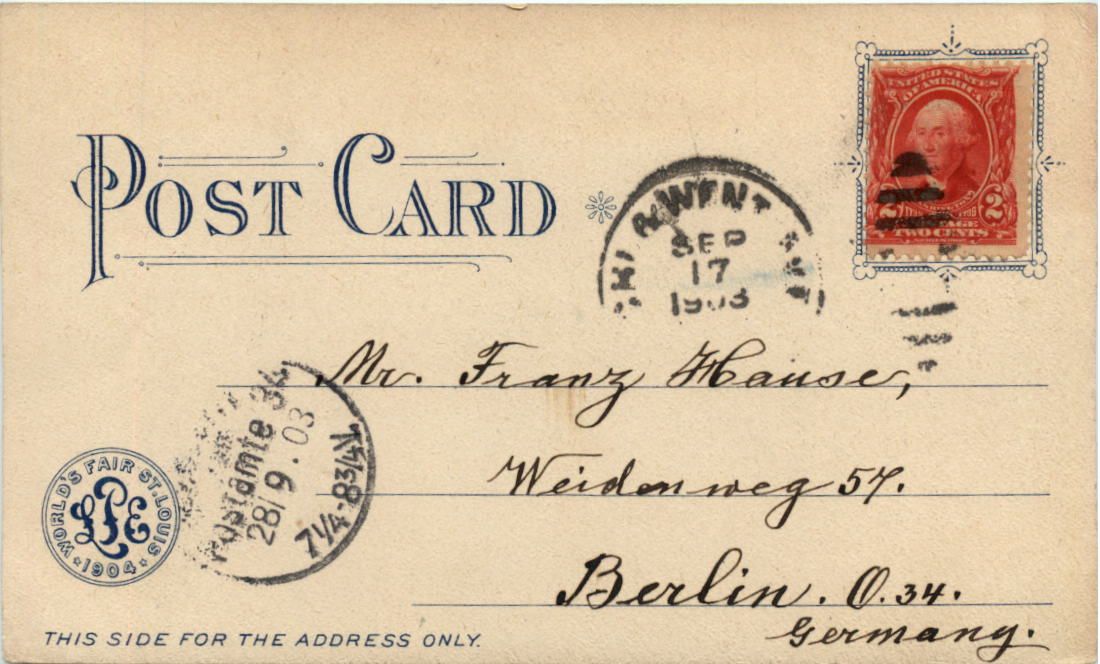 POST CARD
UNITED STATES
OF AMERICA
2 2
TWO CENTS
SEP
17
1903
Mr. Franz Hause,
Weidenweg 57.
Berlin. O. 34.
Germany.
Postamte 34
28/9.03
7¼-8¾N
WORLD'S FAIR ST. LOUIS
LPE
1904
THIS SIDE FOR THE ADDRESS ONLY.